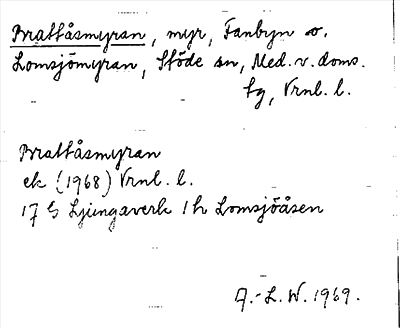 Brattåsmyran, myr, Fanbyn o.
Lomsjömyran, Stöde sn, Med. v. doms.
tg, Vrnl. l.
Brattåsmyran
ek (1968) Vrnl. l.
17 G Ljungaverk 1h Lomsjöåsen
A.-L. W. 1969.